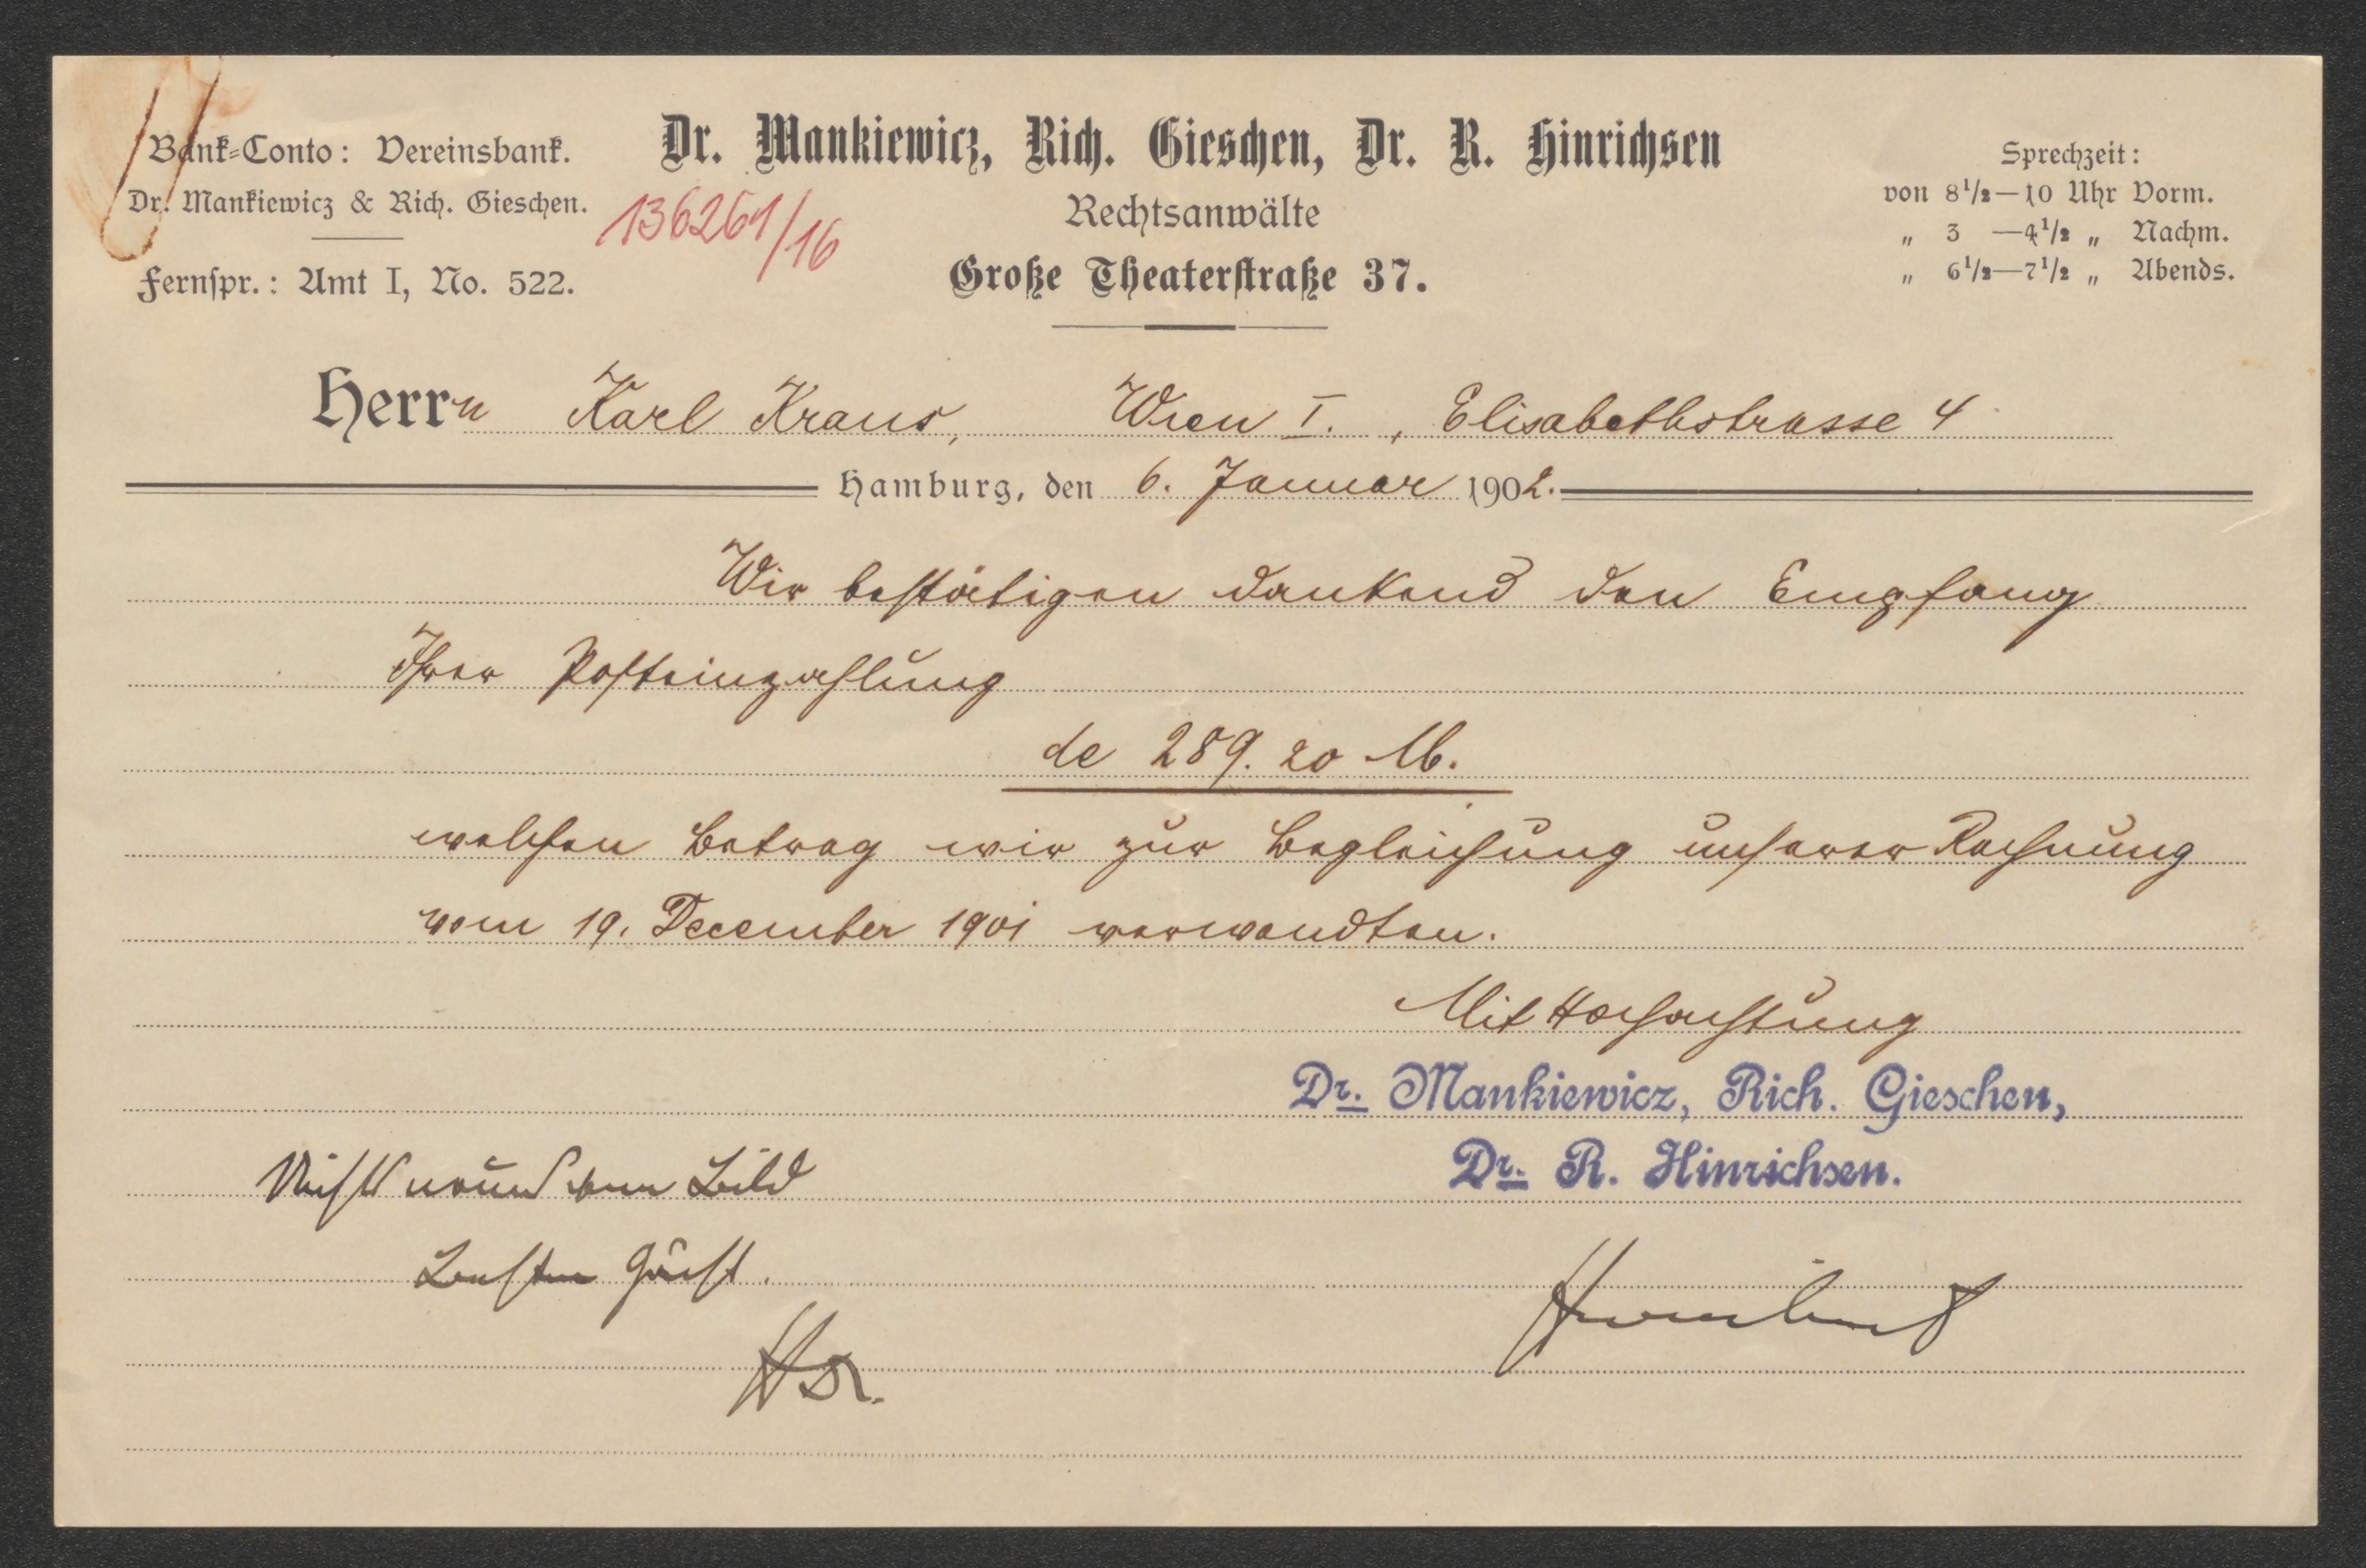 Bank-Conto: Vereinsbank.
Dr. Mankiewicz & Rich. Gieschen.
Fernspr.: Amt I, No. 522.
Dr. Mankiewicz, Rich. Gieschen, Dr. R. Hinrichsen
136261/16
Rechtsanwälte
Große Theaterstraße 37.
Sprechzeit:
von 8½—10 Uhr Vorm.
„ 3 —4½ „ Nachm.
„ 6½—7½ „ Abends.
Herrn Karl Kraus, Wien I., Elisabethstrasse 4
Hamburg, den 6. Januar 1902.
Wir bestätigen dankend den Empfang
Ihrer Posteinzahlung
de 289.20 M.
welchen Betrag wir zur Begleichung unserer Rechnung
vom 19. December 1901 verwandten.
Mit Hochachtung
Dr. Mankiewicz, Rich. Gieschen,
Dr. R. Hinrichsen.
Bild
Besten